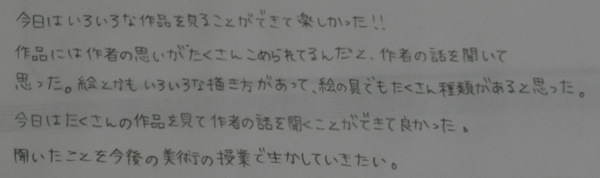 今日はいろいろな作品を見ることができて楽しかった!!
作品には作者の思いがたくさんこめられてるんだと、作者の話を聞いて
思った。絵とかもいろいろな描き方があって、絵の具でもたくさん種類があると思った。
今日はたくさんの作品を見て作者の話を聞くことができて良かった。
聞いたことを今後の美術の授業で生かしていきたい。